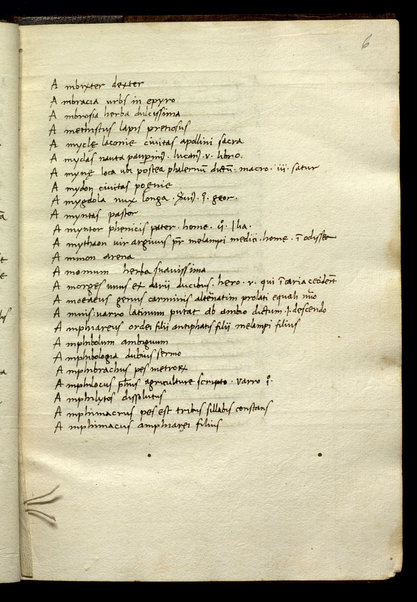 6
A mbixter dexter
A mbracia urbs in epyro
A mbrosia herba dulcissima
A methistus lapis preciosus
A mycle laconie civitas apollini sacra
A myclas nauta pauper lucan9 · v · libro ·
A myne loca ubi postea phalernum macro · iii · satur
A mydon civitas poenie
A mygdola nux longa · geor ·
A myntas pastor
A myntor phenicis pater · home ·
A mythaon vir argivus pr melampi medici · home · i odyssea
A minon arena
A momum herba suavissima
A morges unus ex darii ducibus · hero · v · qui i caria
A moebeus genus carminis prolati equali
A mnis · varro latinum putat ab ambio dictum descendo
A mphiareus oidei filii antiphatis filii melampi filius
A mphibolum ambiguum
A mphibologia dubius sermo
A mphibrachus pes metroru
A mphilocus agriculture scriptor · varro
A mphilytos dissolutus
A mphimacrus pes est tribus sillabis constans
A mphimacus amphiarei filius